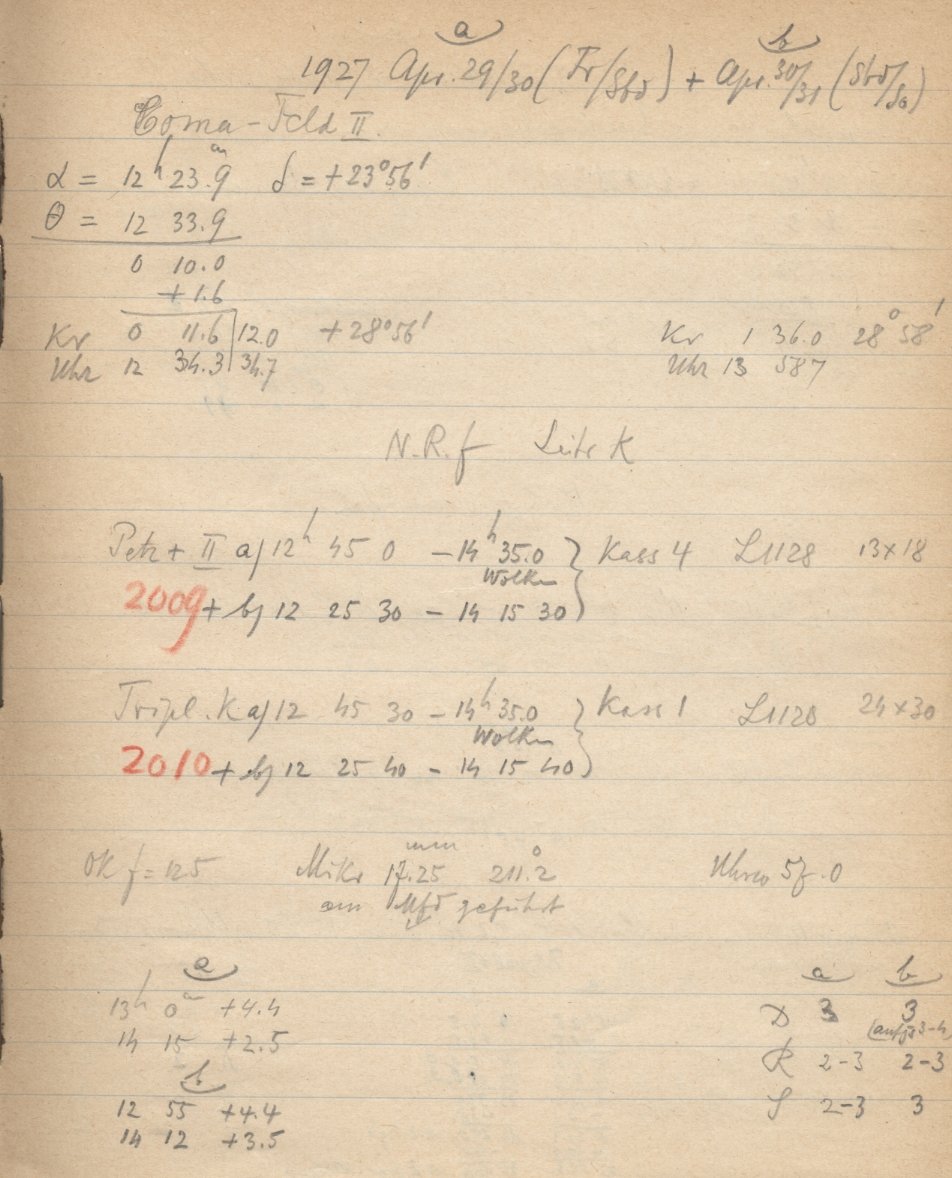 a b
1927 Apr. 29/30 (Fr/Sbd) + Apr. 30/31 (Sbd/So)
Coma-Feld II.
α = 12h 23.9m δ = +23°56'
θ = 12 33.9
0 10.0
+1.6
Kr 0 11.6 | 12.0 +28°56' Kr 1 36.0 28°58'
Uhr 12 34.3 | 34.7 Uhr 13 58 7
N.R.f Leitr K
Petz + II a) 12h 45 0 – 14h 35.0 } Kass 4 L1128 13×18
Wolken
2009 + b) 12 25 30 – 14 15 30
Tripl. K a) 12 45 30 – 14h 35.0 } Kass 1 L1128 24×30
Wolken
2010 + b) 12 25 40 – 14 15 40
OK f = 125 Mikr 17.25mm 211.2° Uhrw 5f.0
am geführt
a a b
13h 0m +4.4 D 3 3
14 15 +2.5 (aufg 3-4)
b R 2-3 2-3
12 55 +4.4 S 2-3 3
14 12 +3.5